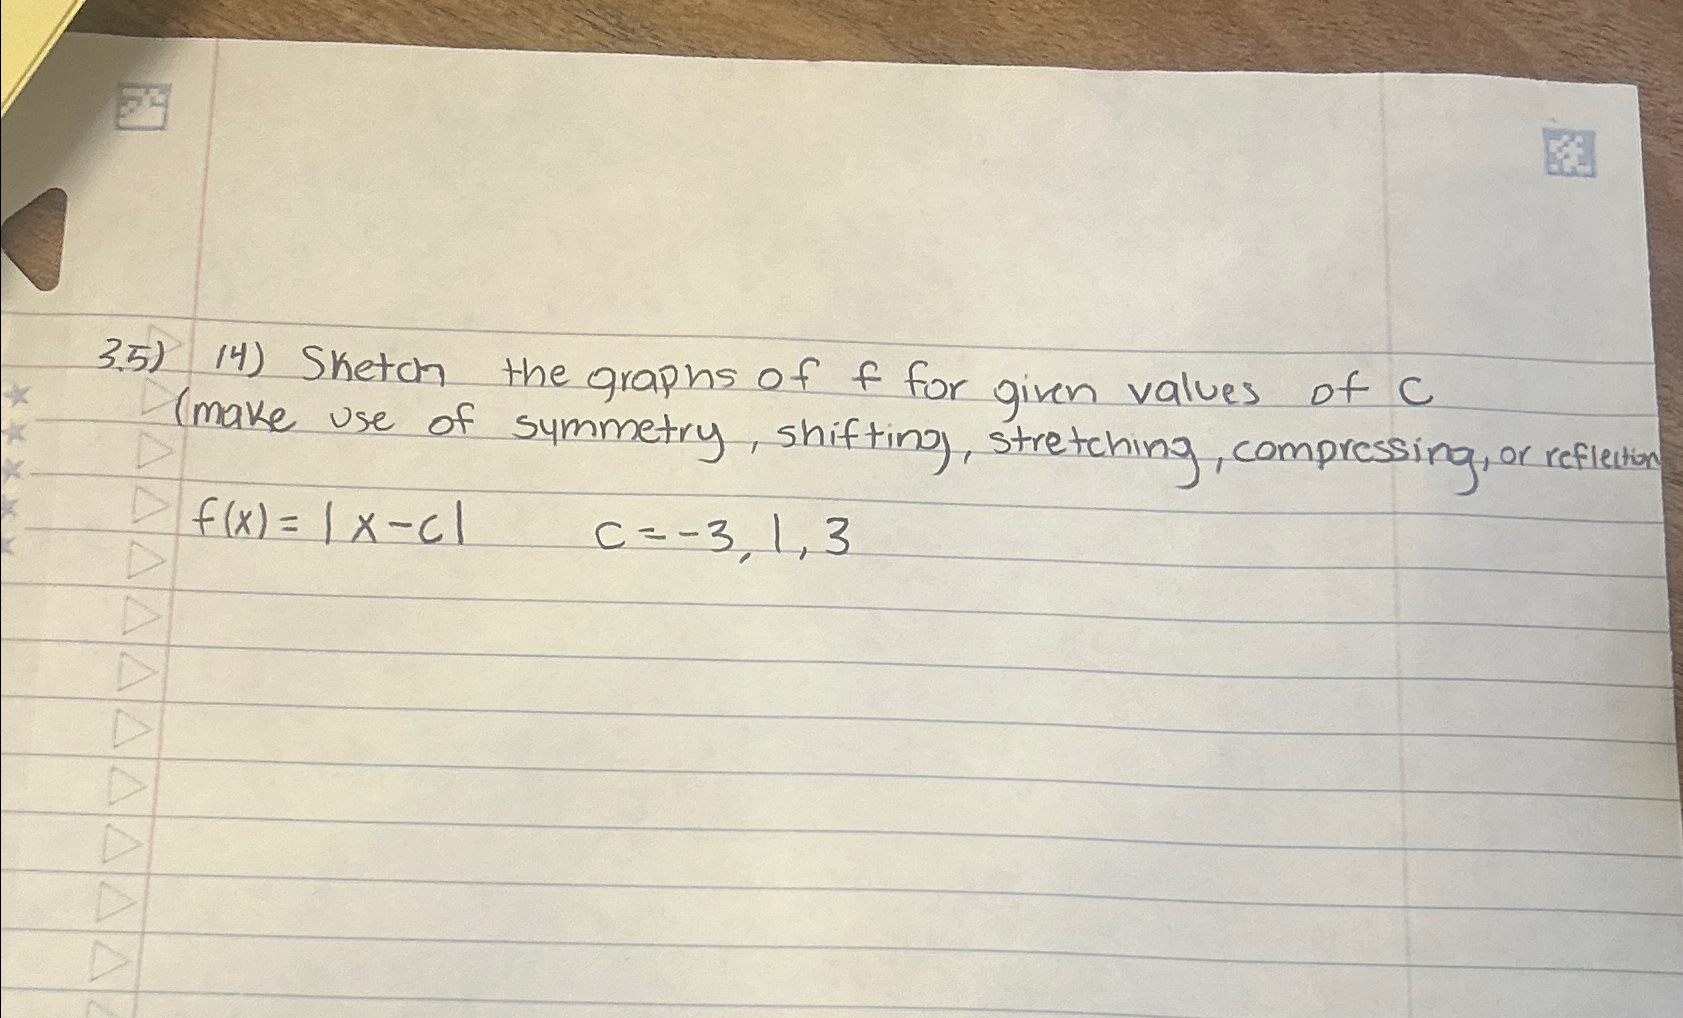 3.5) 14) Sketch the graphs of f for given values of C
(make use of symmetry, shifting, stretching, compressing, or reflection
f(x) = |x-c| c = -3, 1, 3